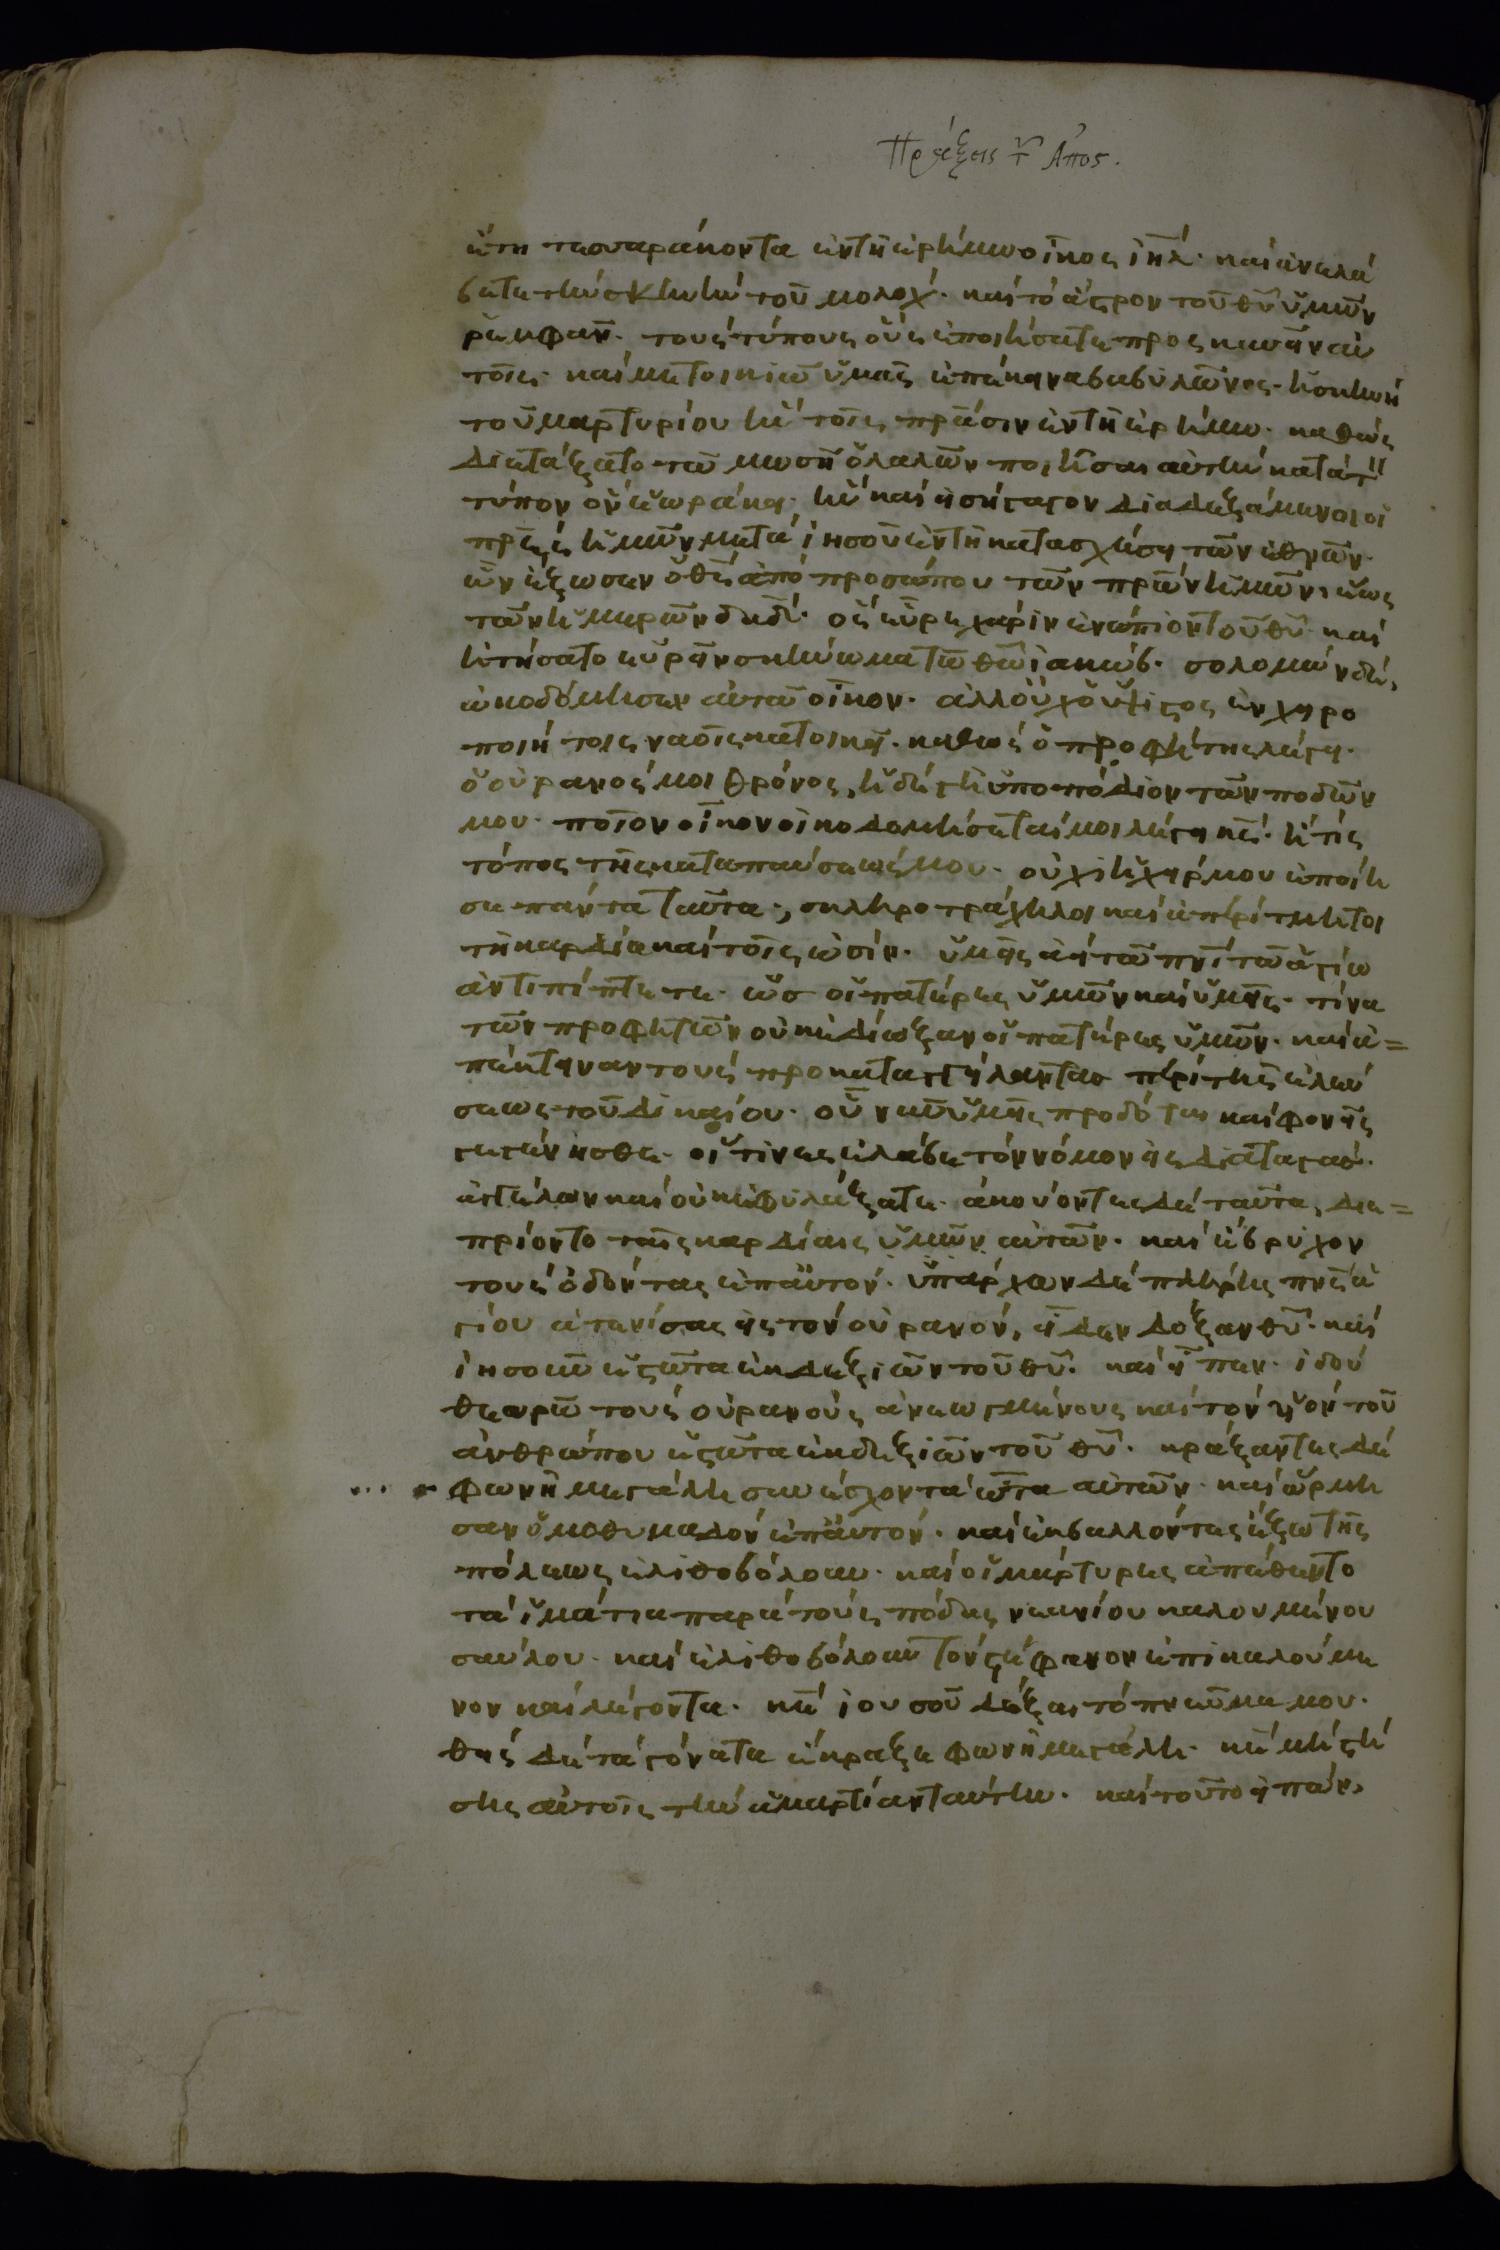 Πράξεις τ Ἀπος.
ἔτη τεσσαράκοντα ἐν τῆ ἐρήμω οἶκος ἰηλ· καὶ ἀνελά
βετε τὴν σκηνὴν τοῦ μολόχ· καὶ τὸ ἄστρον τοῦ θυ ὑμῶν
ρεμφαν· τοὺς τύπους οὓς ἐποιήσατε προσκυνεῖν αὐ
τοῖς· καὶ μετοικιῶ ὑμᾶς ἐπέκεινα βαβυλῶνος· ἡ σκηνὴ
τοῦ μαρτυρίου ἦν τοῖς πρασιν ἐν τῆ ἐρήμω· καθὼς
διετάξατο τῶ μωσῆ ὁ λαλῶν ποιῆσαι αὐτὴν κατὰ τὸν
τύπον ὃν ἑωράκει· ἣν καὶ εἰσήγαγον διαδεξάμενοι οἱ
πρες ἡμῶν μετὰ ἰησοῦ ἐν τῆ κατασχέσει τῶν ἐθνῶν·
ὧν ἔξωσεν ὁ θς ἀπὸ προσώπου τῶν πρων ἡμῶν, ἕως
τῶν ἡμερῶν δαδ· ὃς εὗρε χάριν ἐνώπιον τοῦ θυ καὶ
ἠτήσατο εὑρεῖν σκήνωμα τῶ θῶ ἰακώβ· σολομὼν δὲ,
ὠκοδόμησεν αὐτῶ οἶκον· ἀλλ' οὐχ ὁ ὕψιστος ἐν χειρο
ποιήτοις ναοῖς κατοικεῖ· καθὼς ὁ προφήτης λέγει·
ὁ οὐρανός μοι θρόνος, ἡ δὲ γῆ ὑποπόδιον τῶν ποδῶν
μου· ποῖον οἶκον οἰκοδομήσεταί μοι λέγει κς· ἢ τίς
τόπος τῆς καταπαύσεώς μου· οὐχὶ ἡ χείρ μου ἐποίη
σε πάντα ταῦτα·, σκληροτράχηλοι καὶ ἀπερίτμητοι
τῆ καρδία καὶ τοῖς ὠσίν· ὑμεῖς ἀεὶ τῶ πνι τῶ ἁγίω
ἀντιπίπτετε· ὡς οἱ πατέρες ὑμῶν καὶ ὑμεῖς· τίνα
τῶν προφητῶν οὐκ ἐδίωξαν οἱ πατέρες ὑμῶν· καὶ ἀ=
πέκτειναν τοὺς προκαταγγείλαντας περὶ τῆς ἐλεύ
σεως τοῦ δικαίου· οὗ νῦν ὑμεῖς προδόται καὶ φονεῖς
γεγένησθε· οἵτινες ἐλάβετε τὸν νόμον εἰς διαταγὰς·
ἀγγέλων καὶ οὐκ ἐφυλάξατε· ἀκούοντες δὲ ταῦτα, διε=
πρίοντο ταῖς καρδίαις ὑμῶν αὐτῶν· καὶ ἔβρυχον
τοὺς ὀδόντας ἐπ' αὐτόν· ὑπάρχων δὲ πλήρης πνς ἁ
γίου ἀτενίσας εἰς τὸν οὐρανόν, εἶδεν δόξαν θυ· καὶ
ἰησοῦν ἑστῶτα ἐκ δεξιῶν τοῦ θυ· καὶ εἶπεν· ἰδοὺ
θεωρῶ τοὺς οὐρανοὺς ἀνεωγμένους καὶ τὸν υἱὸν τοῦ
ἀνθρώπου ἑστῶτα ἐκ δεξιῶν τοῦ θυ· κράξαντες δὲ
φωνῆ μεγάλη συνέσχον τὰ ὦτα αὐτῶν· καὶ ὥρμη
σαν ὁμοθυμαδὸν ἐπ' αὐτόν· καὶ ἐκβαλλόντες ἔξω τῆς
πόλεως ἐλιθοβόλουν· καὶ οἱ μάρτυρες ἀπέθεντο
τὰ ἱμάτια παρὰ τοὺς πόδας νεανίου καλουμένου
σαύλου· καὶ ἐλιθοβόλουν τὸν στέφανον ἐπικαλούμε
νον καὶ λέγοντα· κε ἰουσοῦ δέξαι τὸ πνεῦμα μου·
θεὶς δὲ τὰ γόνατα ἔκραξε φωνῆ μεγάλη· κε μὴ στή
σης αὐτοῖς τὴν ἁμαρτίαν ταύτην· καὶ τοῦτο εἰπών,